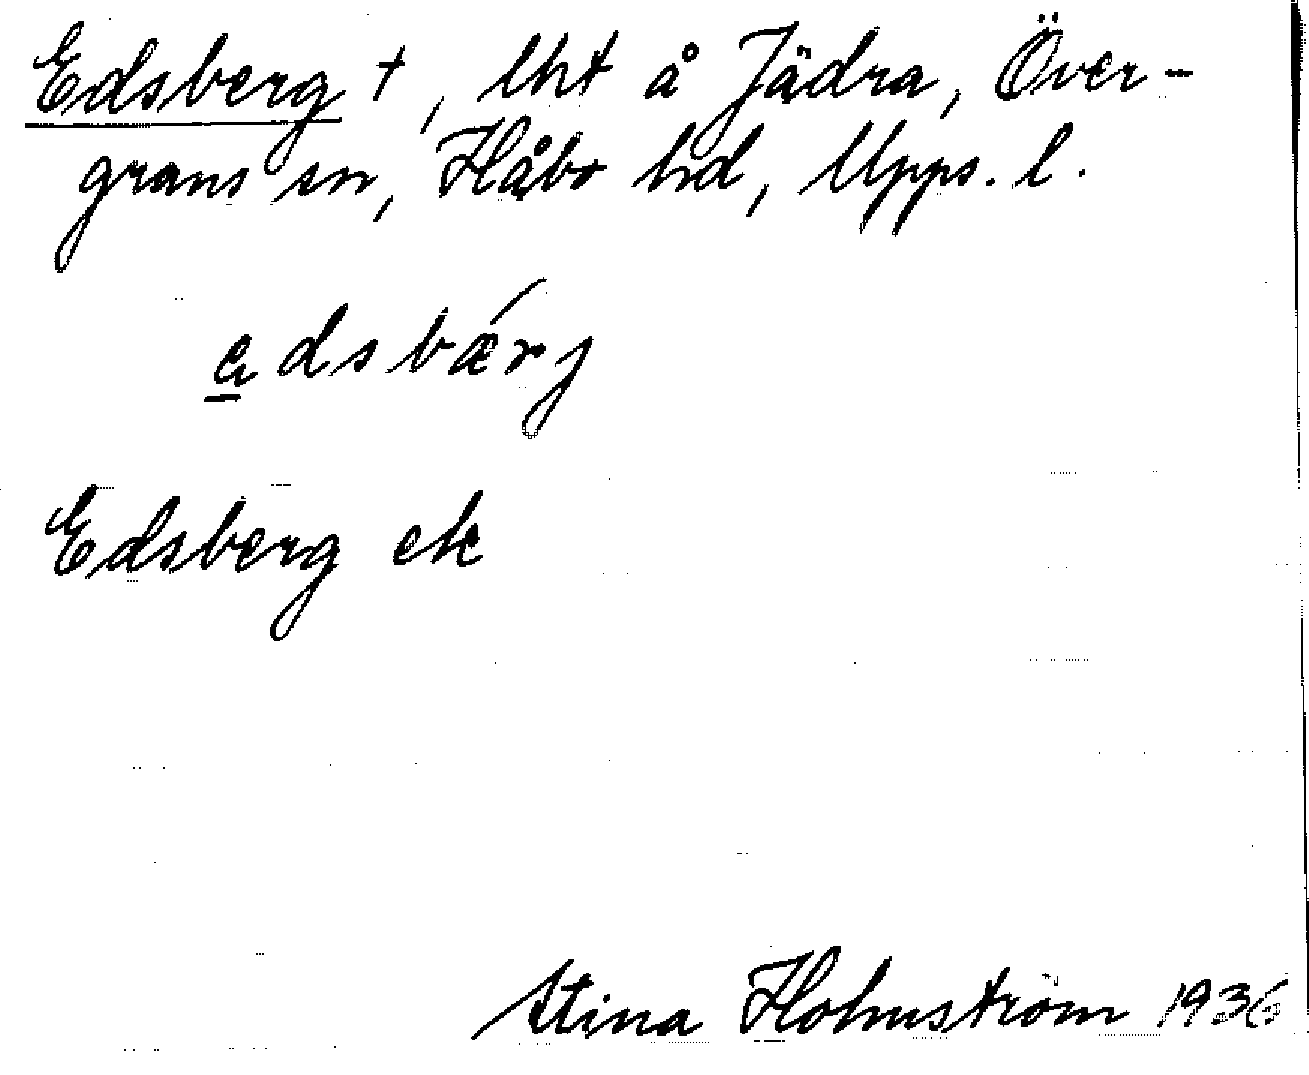 Edsberg †, lht å Jädra, Över-
grans sn, Håbo hd, Upps. l.
e̲dsbǽrj
Edsberg ek
Stina Holmström 1936